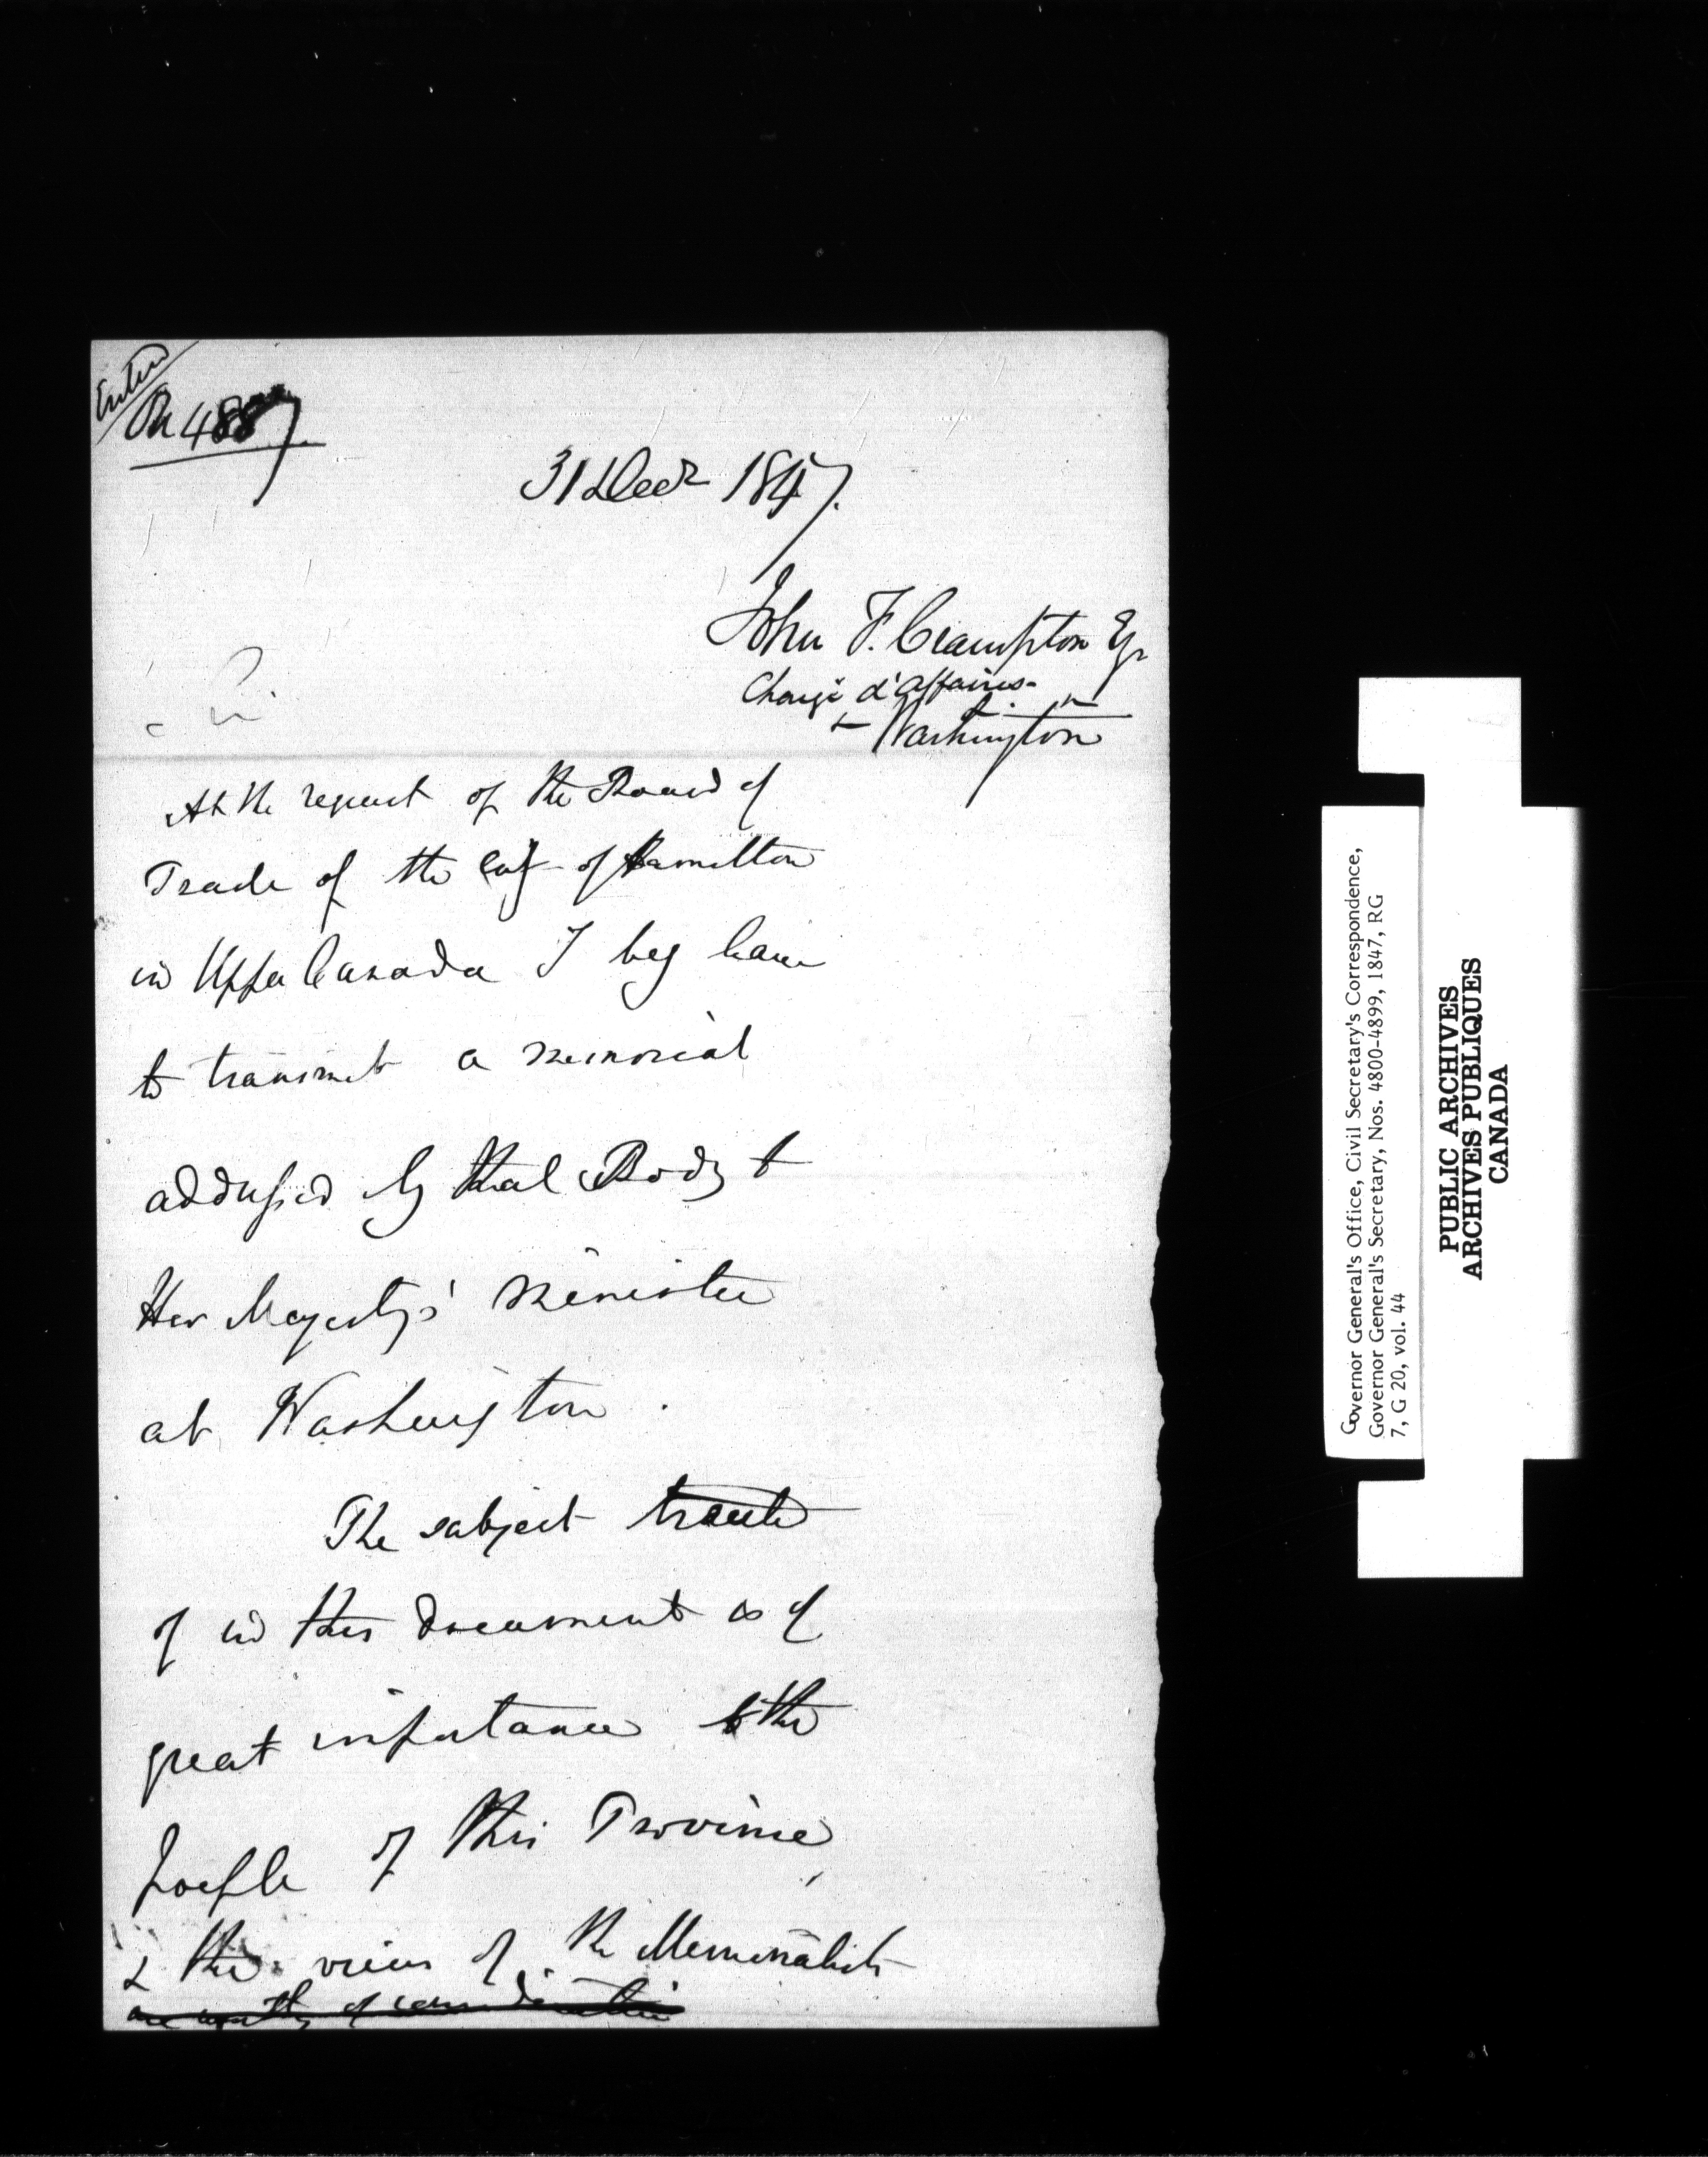 Enter
On 4887
31 Decr 1847.
John F. Crampton Eqr
Chargé d'affaires
Washington
Sir
At the request of the Board of
Trade of the City of Hamilton
in Upper Canada I beg leave
to transmit a memorial
addressed by that Body to
Her Majesty's Minister
at Washington.
The subject treated
of in this document is of
great importance to the
people of this Province,
& the views of the Memorialists
are worthy of consideration
Governor General's Office, Civil Secretary's Correspondence,
Governor General's Secretary, Nos. 4800-4899, 1847, RG
7, G 20, vol. 44
PUBLIC ARCHIVES
ARCHIVES PUBLIQUES
CANADA